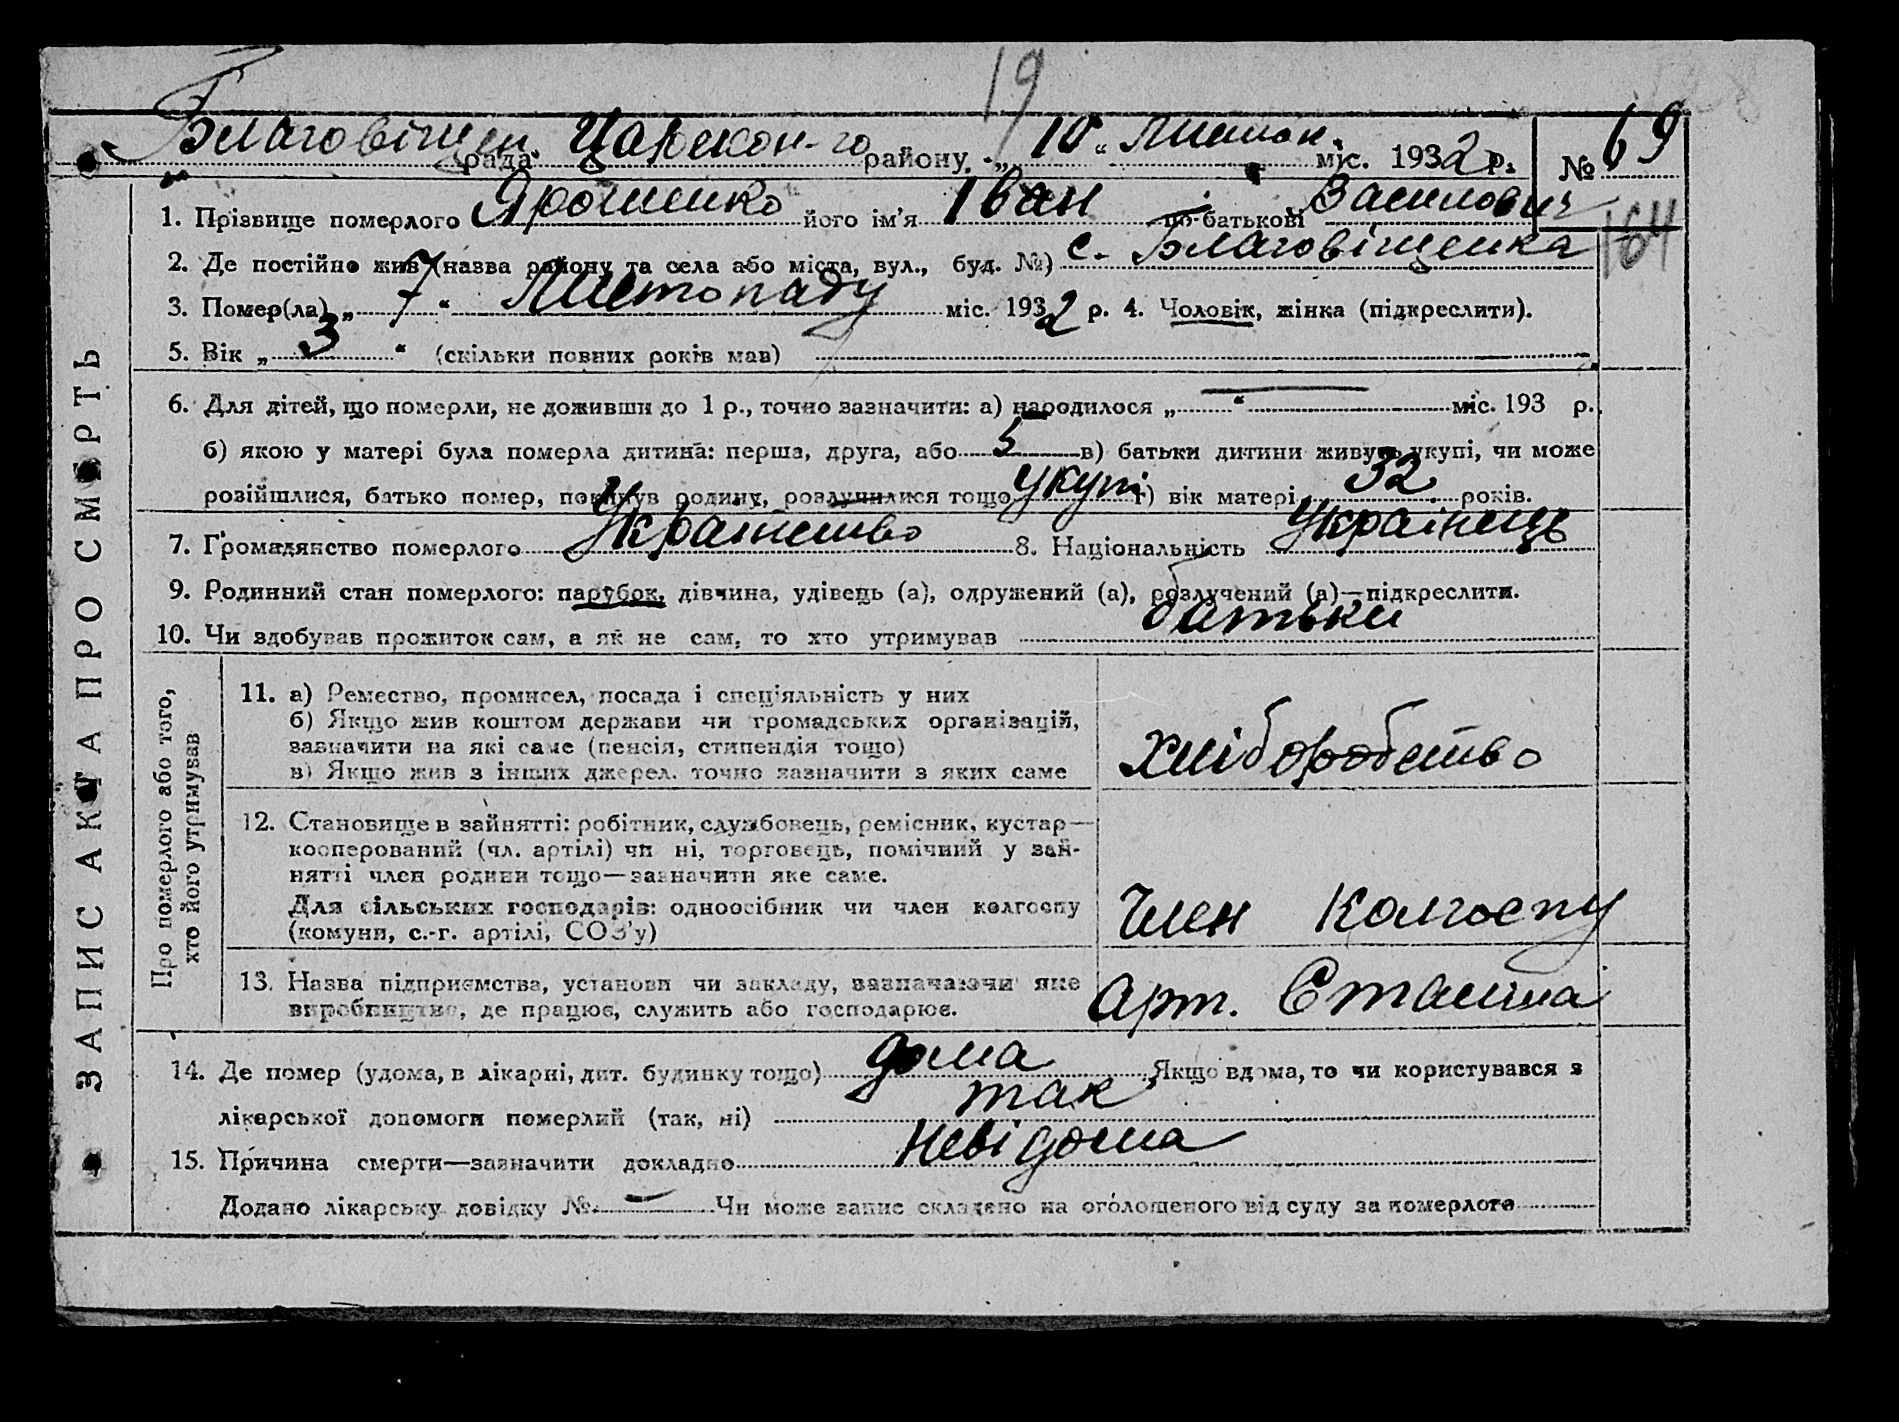 19
Благовіщен. рада Царекон-го району „10“ Листоп. міс. 1932 р. № 69
1. Прізвище померлого Ярошенко його ім’я Іван по-батькові Василович
164
2. Де постійно жив (назва району та села або міста, вул., буд. №) с. Благовіщенка
3. Помер(ла) „7“ Листопаду міс. 1932 р. 4. Чоловік, жінка (підкреслити).
5. Вік „3“ (скільки повних років мав)
6. Для дітей, що померли, не доживши до 1 р., точно зазначити: а) народилося „ “ міс. 193 р.
б) якою у матері була померла дитина: перша, друга, або 5 в) батьки дитини живуть укупі, чи може
розійшлися, батько помер, покинув родину, розлучилися тощо укупі г) вік матері 32 років.
7. Громадянство померлого Українство 8. Національність Українець
9. Родинний стан померлого: парубок, дівчина, удівець (а), одружений (а), розлучений (а)—підкреслити.
10. Чи здобував прожиток сам, а як не сам, то хто утримував батьки
ЗАПИС АКТА ПРО СМЕРТЬ
Про померлого або того,
хто його утримував
11. а) Ремество, промисел, посада і спеціяльність у них
б) Якщо жив коштом держави чи громадських організацій,
зазначити на які саме (пенсія, стипендія тощо)
в) Якщо жив з інших джерел, точно зазначити з яких саме
хліборобство
12. Становище в зайнятті: робітник, службовець, ремісник, кустар—
кооперований (чл. артілі) чи ні, торговець, помічний у зай-
нятті член родини тощо—зазначити яке саме.
Для сільських господарів: одноосібник чи член колгоспу
(комуни, с.-г. артілі, СОЗ’у)
Член колгоспу
13. Назва підприємства, установи чи закладу, зазначаючи яке
виробництво, де працює, служить або господарює.
Арт. Сталіна
14. Де помер (удома, в лікарні, дит. будинку тощо) дома Якщо вдома, то чи користувався з
лікарської допомоги померлий (так, ні) так
15. Причина смерти—зазначити докладно невідома
Додано лікарську довідку №. — Чи може запис складено на оголошеного від суду за померлого